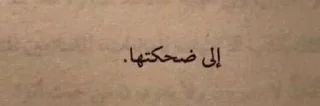 إلى ضحكتها.